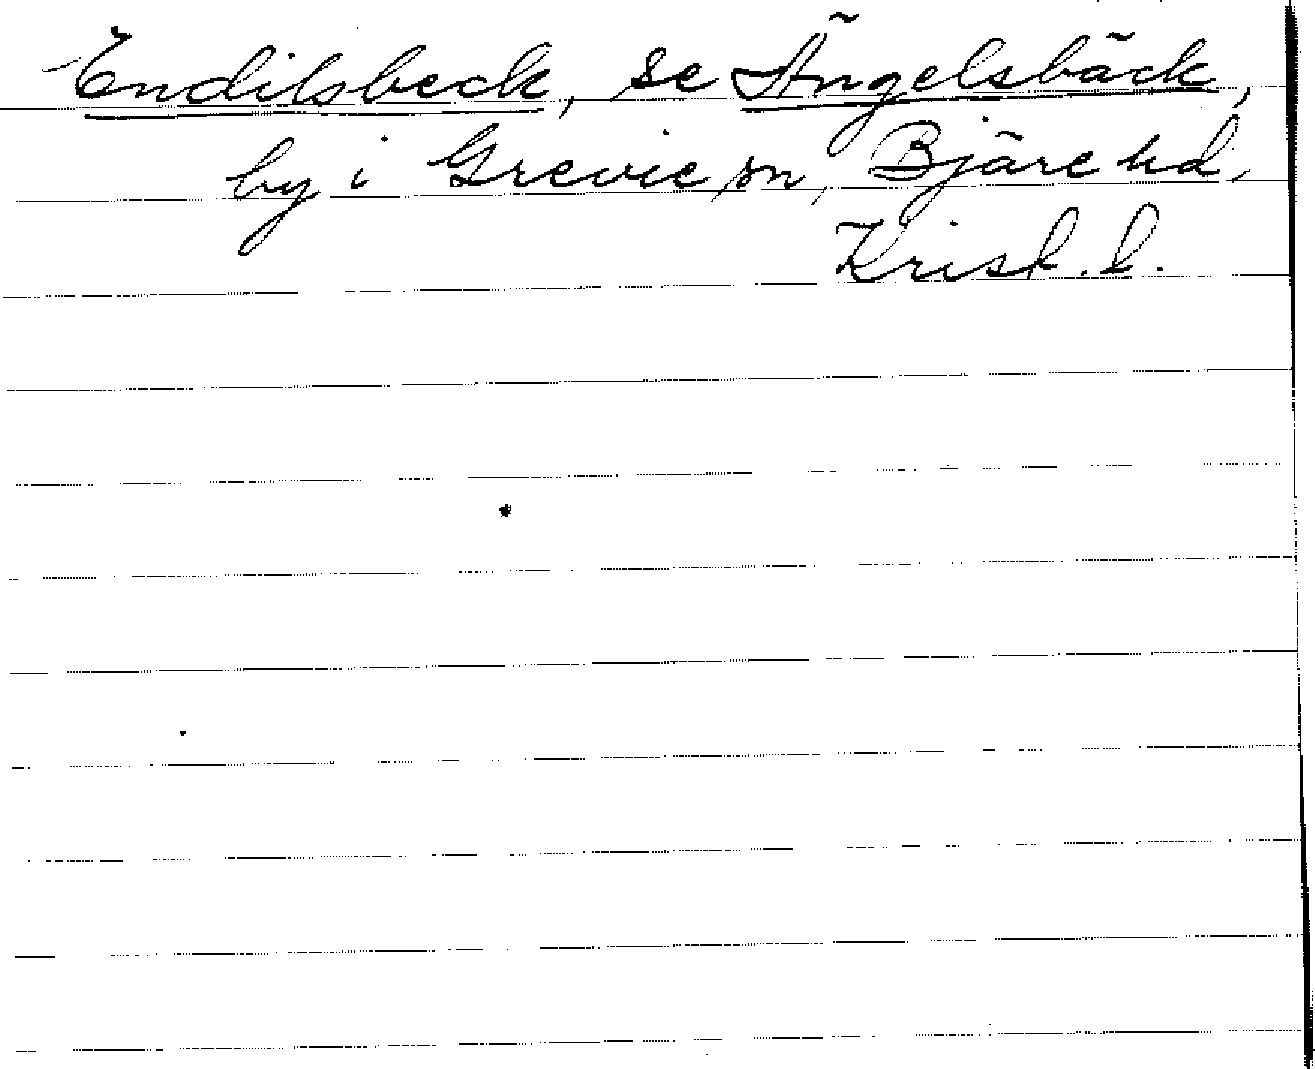 Endilsbeck, se Ängelsbäck,
by i Grevie sn, Bjäre hd,
Krist. l.